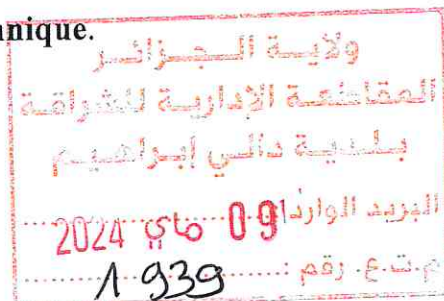 nnique.
ولاية الـجـزائـر
المقاطعة الإدارية للشراقة
بـلـديـة دالـي إبـراهـيـم
البريد الوارد
09 ماي 2024
م.ت.ع. رقم : 1939